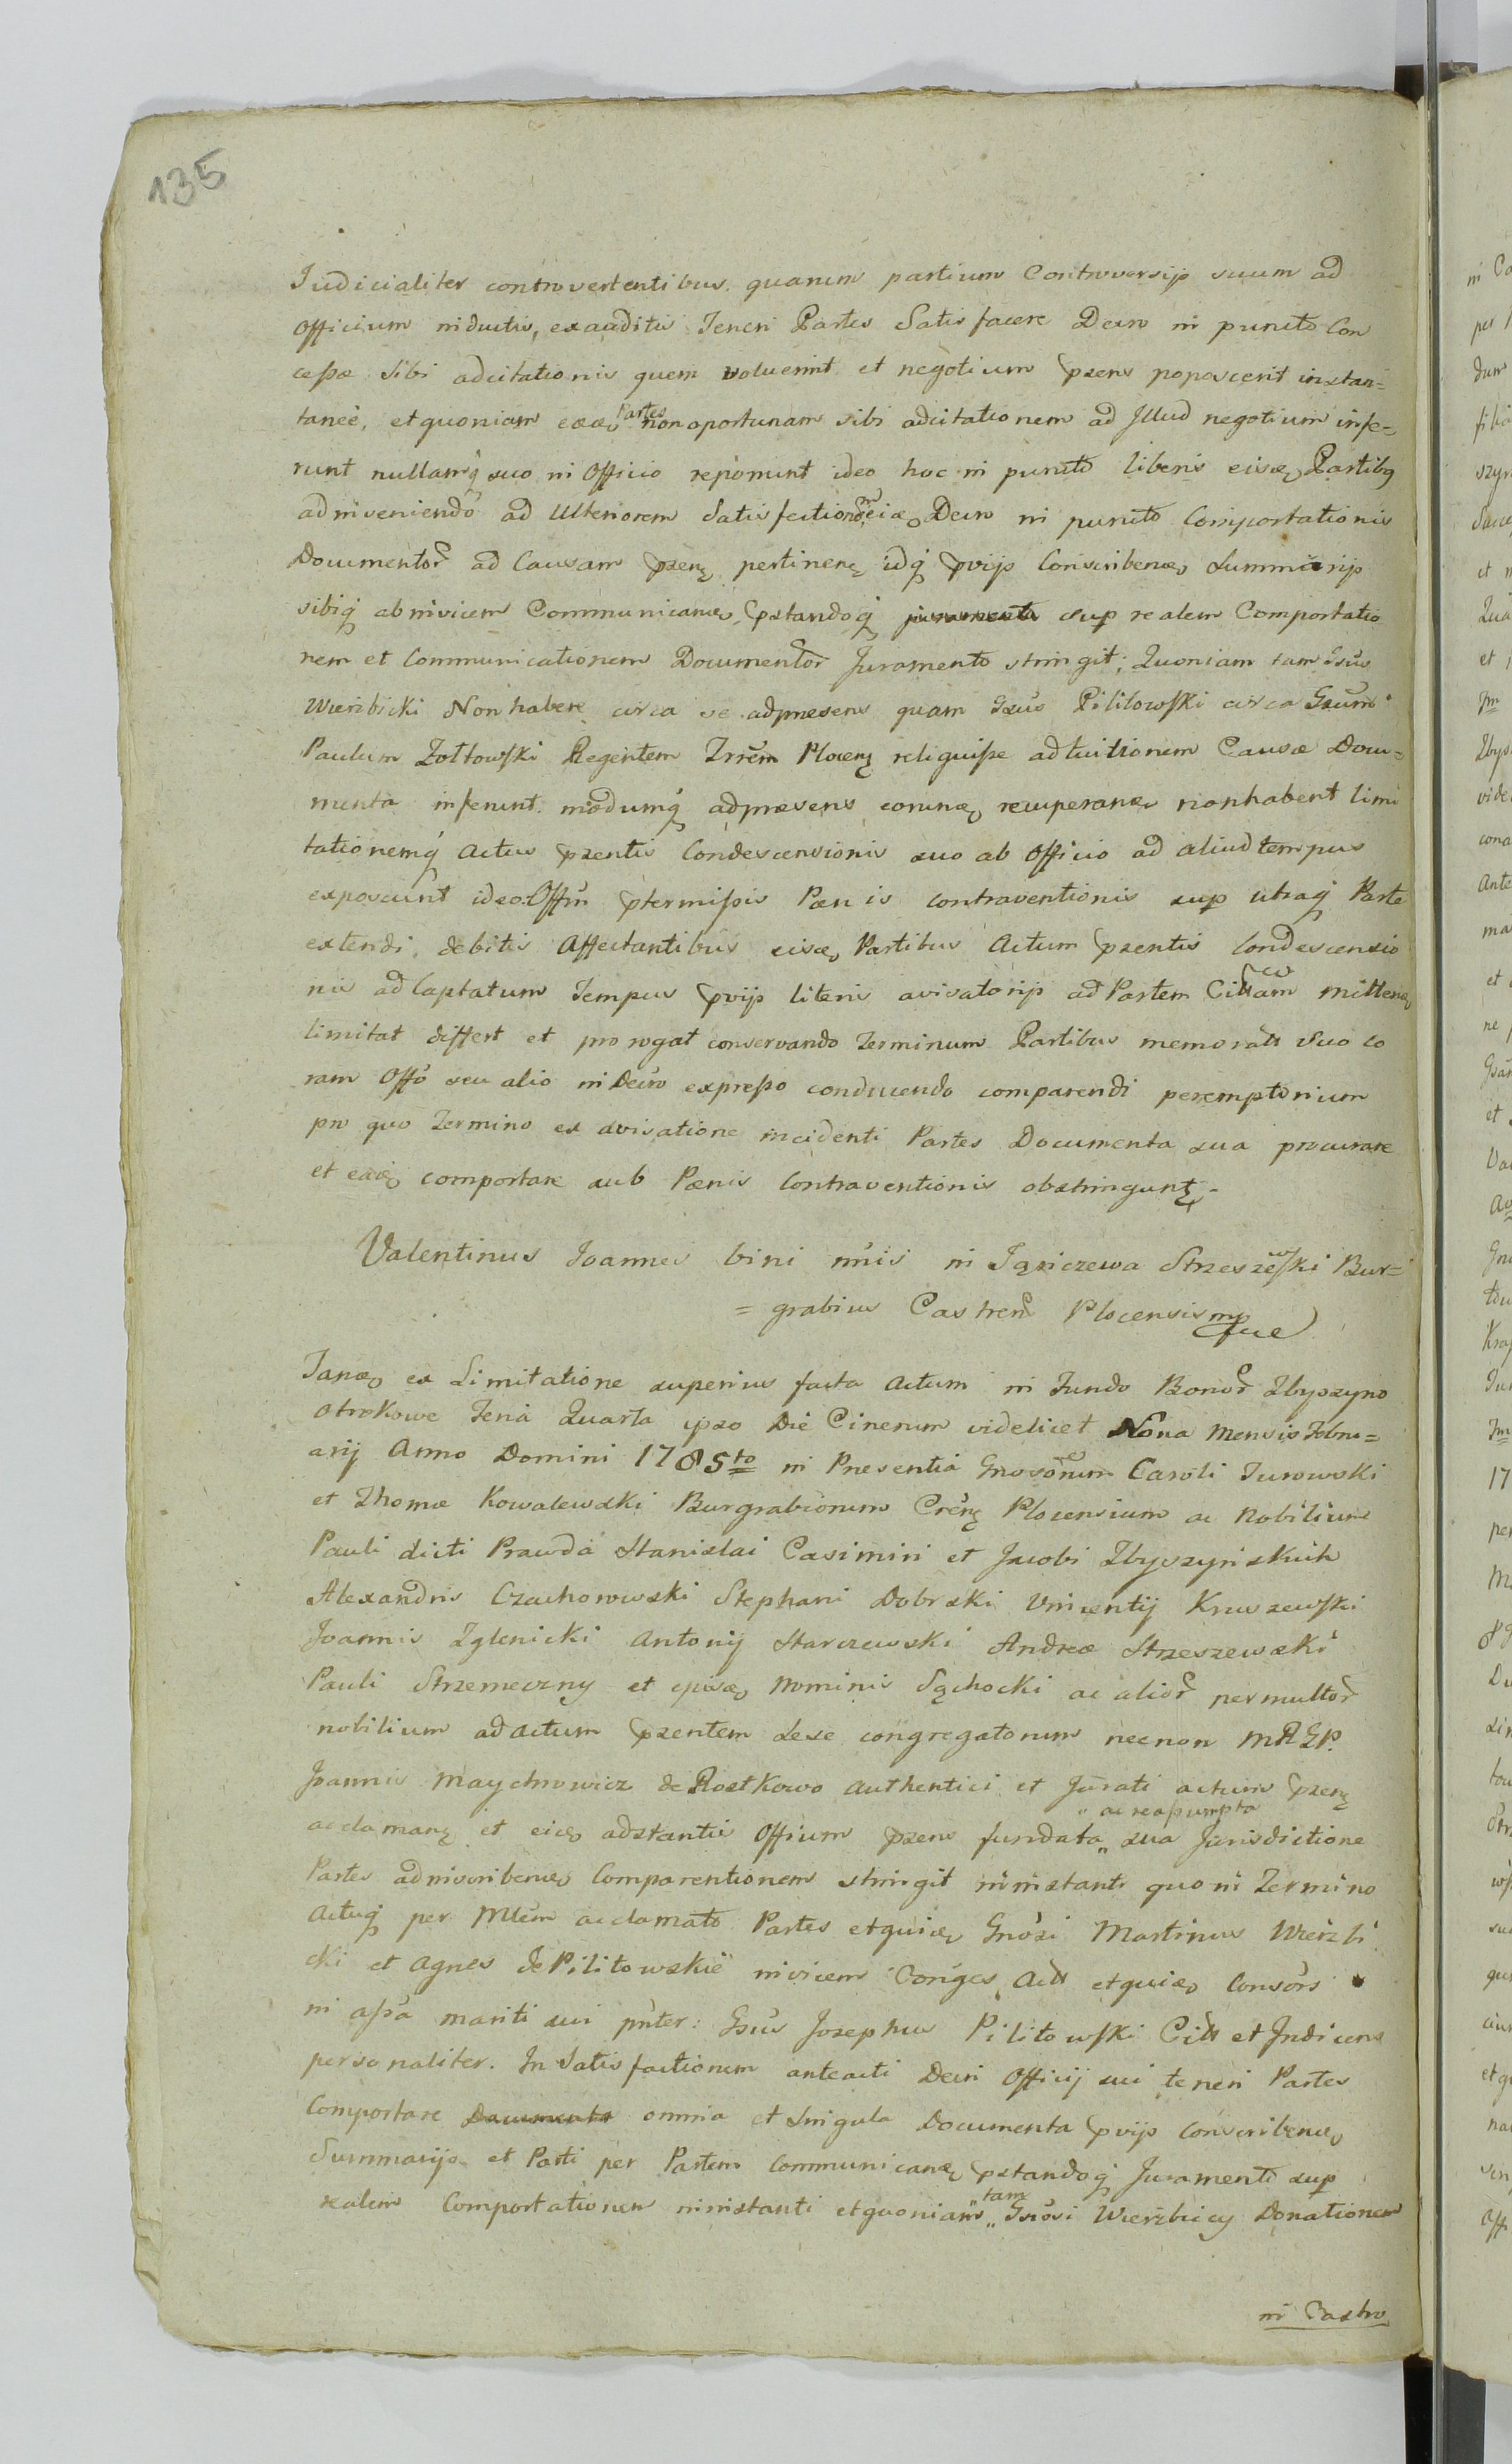 135
Judicialiter controvertentibus. quarum partium Controversijs suum ad
Officium inductis, exauditis Teneri Partes Satisfacere Decro in puncto Con
cessæ sibi adcitationis quem voluerint et negotium pzens poposcerit instan=
tanee, et quoniam eæd Partes non oportunam sibi adcitationem ad Jllud negotium infe=
runt nullamq suo in Officio reponunt ideo hoc in puncto liberis eisd Partibq
adinveniendo ad Ulteriorem Satisfactionem Decro in puncto Comportationis
Documentor ad Causam pzens pertinens idq pvijs Conscribend Summarijs
sibiq ab invicem Communicand pstandoq sup realem Comportatio
nem et Communicationem Documentor Juramento stringit; Quoniam tam Gsus
Wierzbicki Non habere circa se adpraesens quam Gsus Pilitowski circa Gsum
Paulum Zołtowski Regentem Trrem Plocens reliquisse ad tuitionem Causæ Docu=
menta inferunt. modumq adpraesens eorund recuperand non habent limi
tationemq Actus pzentis Condescensionis suo ab Officio ad aliud tempus
exposcunt ideo Offm ptermissis Pænis contraventionis sup utraq Parte
extendi debitis Affectantibus eisd Partibus Actum pzentis Condescensio
nis ad Captatum Tempus pvijs literis avisatorijs ad Partem Cittam mittend
limitat differt et prorogat conservando Terminum Partibus memoratis suo co
ram Offo seu alio in Decro expresso conducendo comparendi peremptorium
pro quo Termino ex avisatione incidenti Partes Documenta sua procurare
et ead comportare sub Pænis Contraventionis obstringunt.
Valentinus Joannes bini nnis in Strzeszewski Bur=
= grabius Castren Plocensis mp
Tand ex Limitatione superius facta Actum in Fundo Bonor Zbyszyno
Otrokowe Feria Quarta ipso Die Cinerum videlicet Nona Mensis Febru=
arij Anno Domini 1785to in Presentia Gnosorum Caroli Turowski
et Thomæ Kowalewski Burgrabiorum Crens Plocensium ac Nobilium
Pauli dicti Prawda Stanislai Casimiri et Jacobi Zbyszynskich
Alexandris Czachorowski Stephani Dobrski Vincentij Kruszewski
Joannis Zglenicki Antonij Starczewski Andreæ Strzeszewski
Pauli Strzemeczny et ejusd Nominis Sąchocki ac alior permultor
nobilium ad actum pzentem sese congregatorum necnon MRGP.
Joannis Maychrowicz de Rostkowo Authentici et Jurati actum pzens
acclamans et eid adstantis Offium pzens fundata „ac reassumpta„ sua Jurisdictione
Partes ad inscribend Comparentionem stringit in instanti quo in Termino
Actuq per Mlem acclamato Partes et quid Gnosi Martinus Wierzbi
cki et Agnes de Pilitowskie invicem Conges Actt et quid Consors
in assa mariti sui pnter: Gsus Josephus Pilitowski Citt et Indicens
personaliter. In Satisfactionem anteacti Decri Officij sui teneri Partes
Comportare Documenta omnia et Singula Documenta pvijs Conscribend
Summarijs et Parti per Partem Communicand pstandoq Juramento sup
realem Comportationem in instanti et quoniam „tam„ Gnosi Wierzbiccy Donationem
in Castro